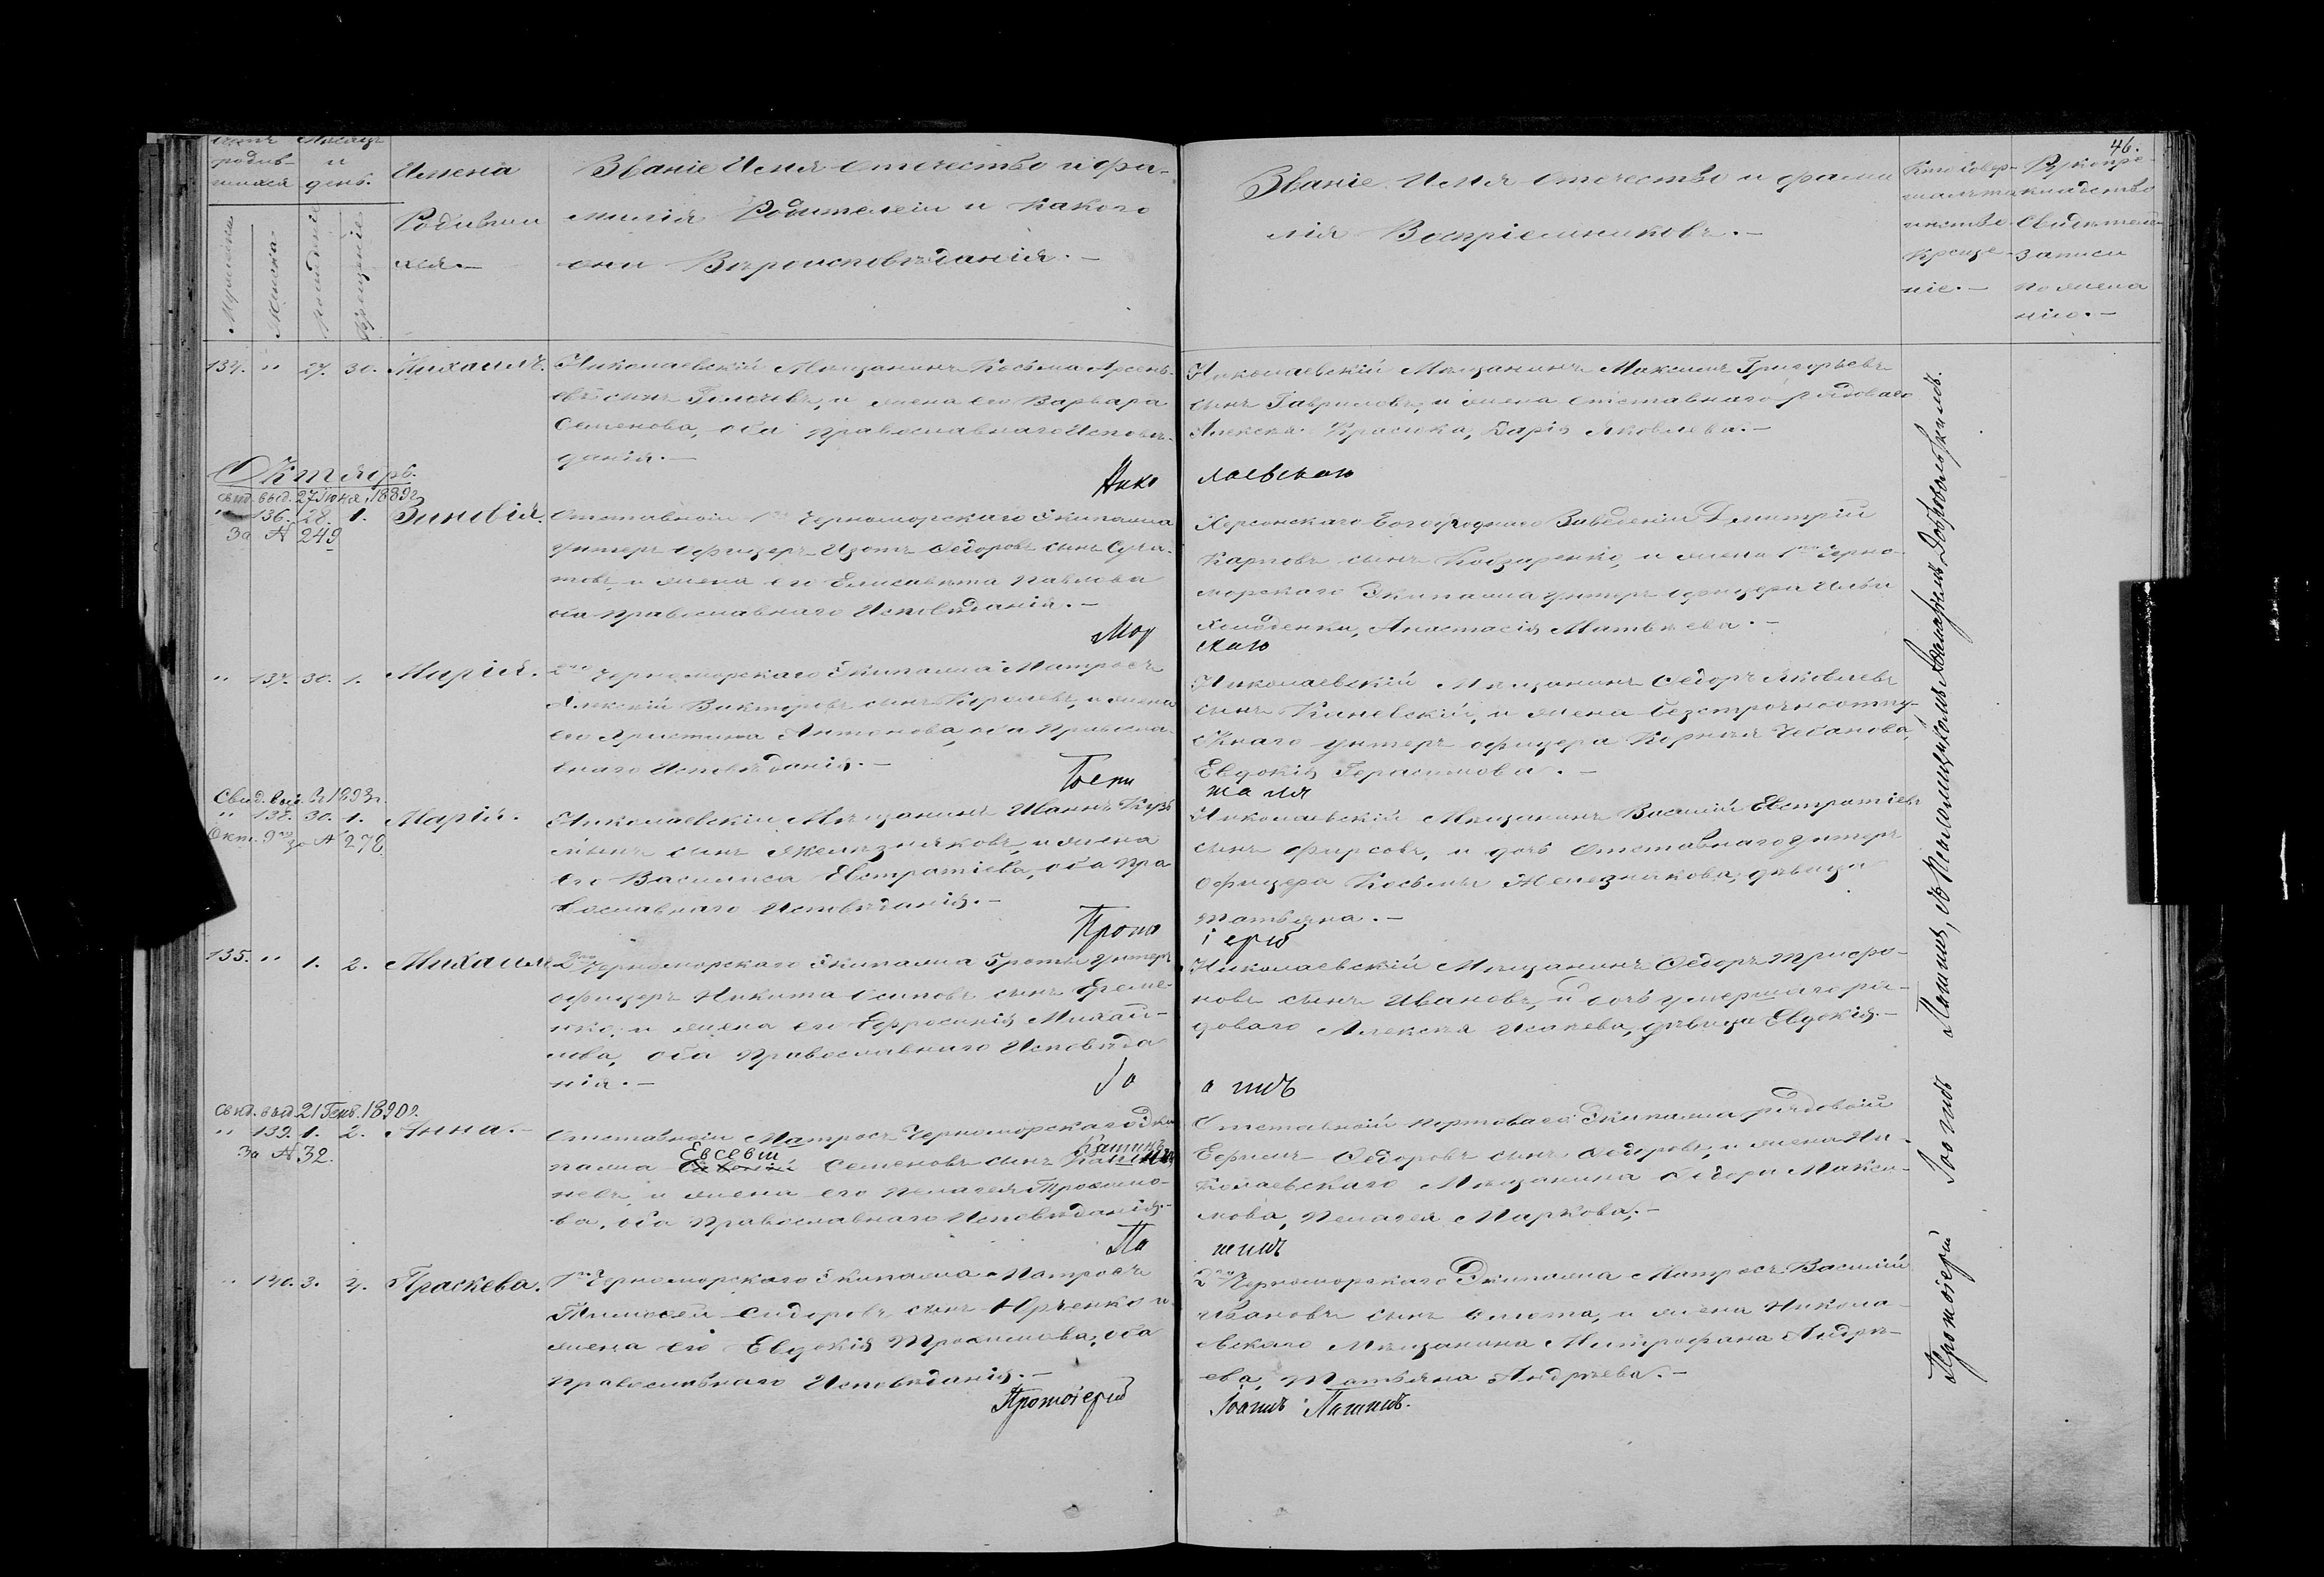 46.
родив-
шихся
Месяцъ
и
день.
Имена
Родивши
хся.—
Мужескъ
Женска.
Рожденіе
Крещеніе
Званіе Имя Отечество и фа-
милія Родителей и какого
они Вероисповеданія.—
Званіе Имя Отечество и фами
лія Воспріемниковъ.—
Кто совер-
шалъ та
инство
Креще
ніе.—
Рукопри-
кладство
Свидетелей
записи
по жела
нію.—
134. " 27. 30. Михаилъ.
Николаевскій Мещанинъ Косьма Арсень-
евъ сынъ и жена его Варвара
Семенова, оба православнаго Испове-
данія.—
Николаевскій Мещанинъ Максимъ Григорьевъ
сынъ Гавриловъ, и жена отставнаго рядоваго
Алексея Дарія Яковлева.—
Нико лаевскаго
Октябрь.
свид. выд. 27 Іюня 1889г.
" 136. 28. 1. Зиновія.
За № 249
Отставной 1го Черноморскаго Экипажа
унтеръ офицеръ Изотъ Федоровъ сынъ
и жена его Елисавета Павлова
оба православнаго Исповеданія.—
Херсонскаго Богоугоднаго Заведенія Дмитрій
Карповъ сынъ и жена 1го Черно-
морскаго Экипажа унтеръ офицера Ильи
Анастасія Матвеева.—
Мор скаго
" 137. 30. 1. Марія.
2го Черноморскаго Экипажа Матросъ
Алексій Викторовъ сынъ и жена
его Христина Антонова, оба Правосла-
внаго Исповеданія.—
Николаевскій Мещанинъ Федоръ Яковлевъ
сынъ и жена безсрочноотпу-
скнаго унтеръ офицера Корнилія Чебанова,
Евдокія Герасимова.—
Госпи таля
Свид. выд. въ 1893г.
" 138. 30. 1. Марія.
Окт. 9го за № 278
Николаевскій Мещанинъ Иванъ Кузь
минъ сынъ Железняковъ, и жена
его Василиса Евстратіева, оба пра
вославнаго Исповеданія.—
Николаевскій Мещанинъ Василій Евстратіевъ
сынъ Фирсовъ, и дочь Отставнаго унтеръ
офицера Косьмы Железнякова, девица
Татьяна.—
Прото іерей
135. " 1. 2. Михаилъ
2го Черноморскаго Экипажа унтеръ
офицеръ Никита Осиповъ сынъ Ереме-
нко, и жена его Ефросинія Михай-
лова, оба православнаго Исповеда
нія.—
Николаевскій Мещанинъ Федоръ Трифо-
новъ сынъ Ивановъ, и дочь умершаго ря-
доваго Алексея Исакева, девица Евдокія.—
Іо аннъ
свид. выд. 21 Генв. 1890г.
" 139. 1. 2. Анна.—
За № 32.
Отставной Матросъ Черноморскаго Эки
пажа Евсевій Семеновъ сынъ
и жена его Пелагея Трофимо-
ва, оба Православнаго Исповеданія.—
Отставной портоваго Экипажа рядовой
Ефимъ Федоровъ сынъ Федоровъ, и жена Ни-
колаевскаго Мещанина Федора Макси-
мова, Пелагея Маркова.—
Па шинъ
" 140. 3. 4. Праскева.
1го Черноморскаго Экипажа Матросъ
Тимофей Сидоровъ сынъ Юрченко и
жена его Евдокія Трофимова, оба
православнаго Исповеданія.—
2го Черноморскаго Экипажа Матросъ Василій
Ивановъ сынъ и жена Никола-
евскаго Мещанина Митрофана Андре-
ева, Татьяна Андреева.—
Протоіерей Іоаннъ Пашинъ.
Протоіерей Іоаннъ Пашинъ, съ Псаломщикомъ